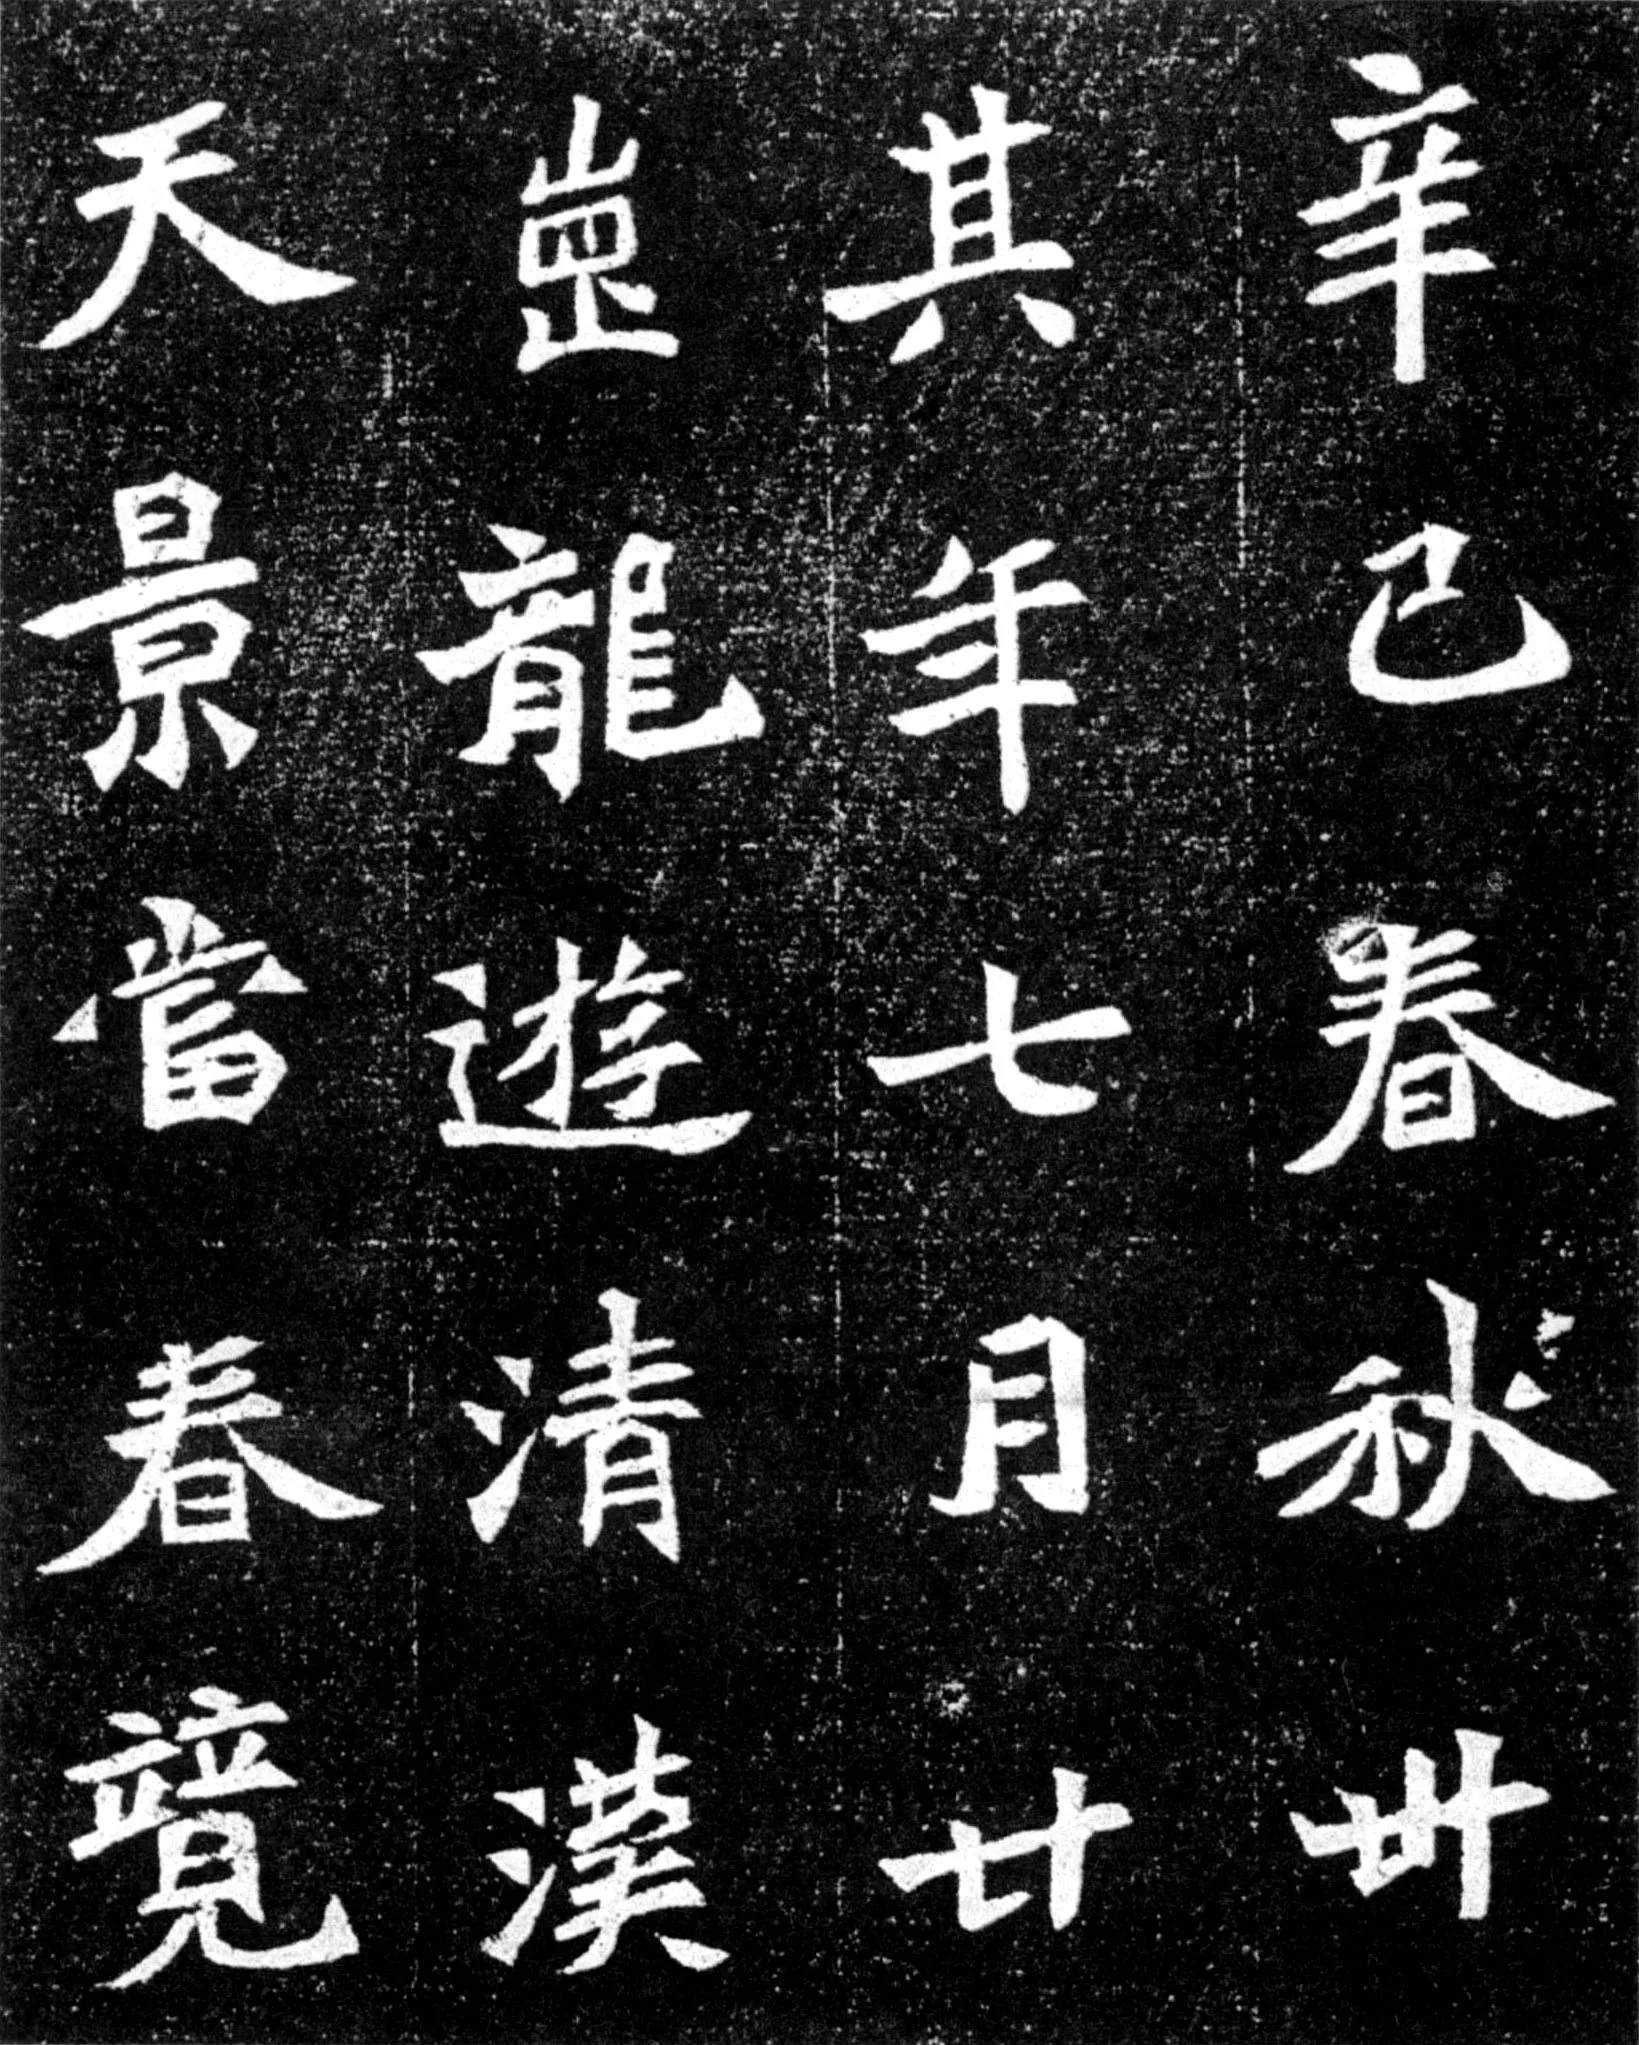 辛巳春秋卌
其年七月廿
崗龍遊清漢
天景當春競